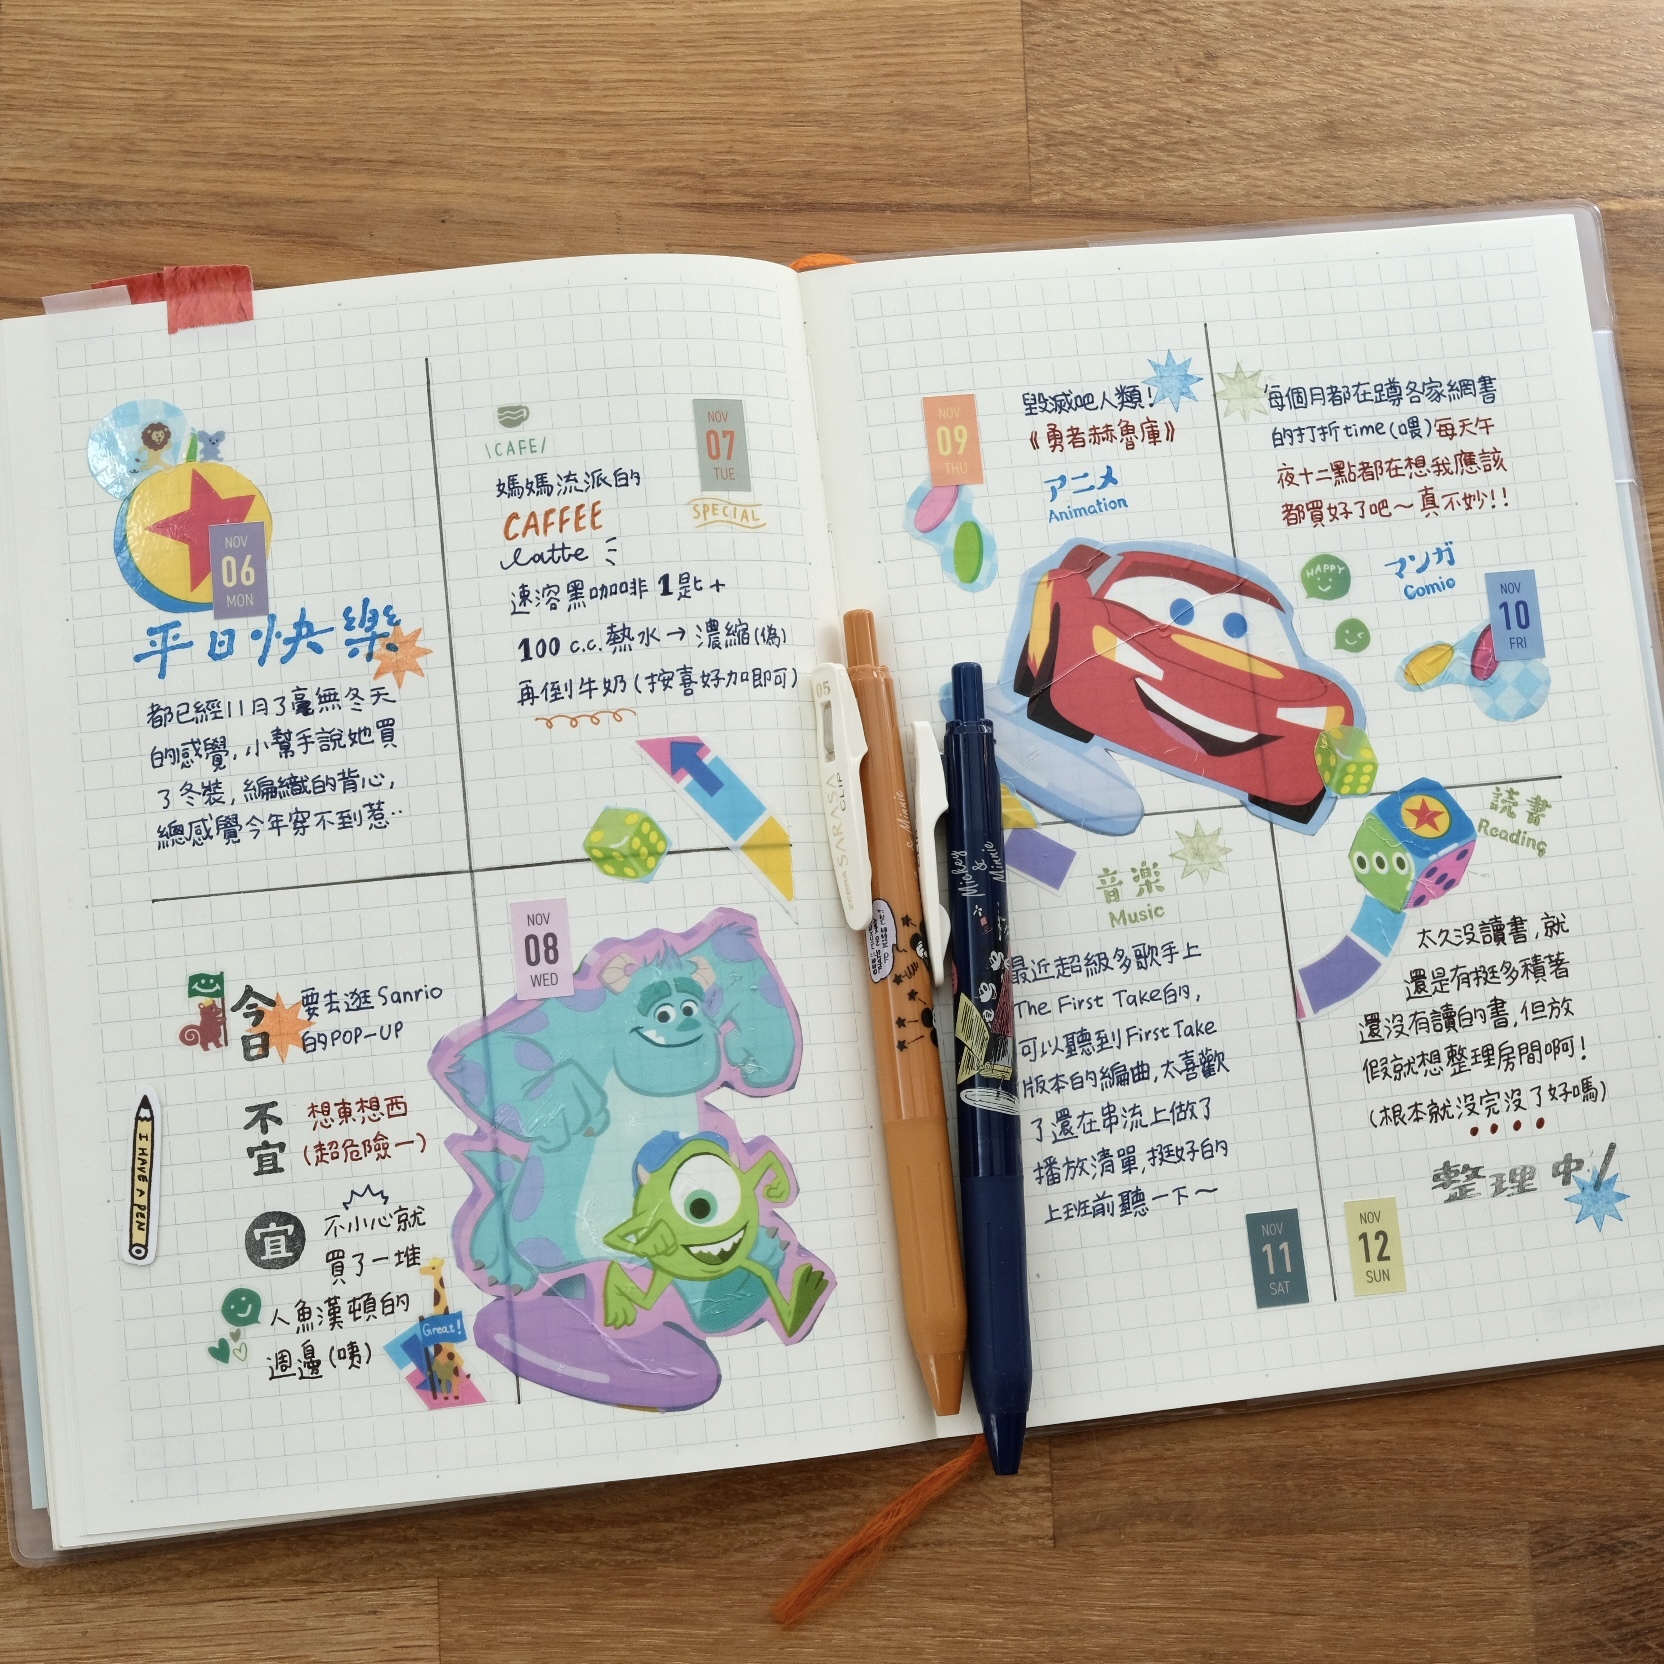 NOV
06
MON
平日快樂
都已經11月了毫無冬天
的感覺,小幫手說她買
了冬裝,編織的背心,
總感覺今年穿不到惹..
\CAFE/
NOV
07
TUE
SPECIAL
媽媽流派的
CAFFEE
latte
速溶黑咖啡 1匙+
100 c.c.熱水→濃縮(偽)
再倒牛奶(按喜好加即可)
NOV
08
WED
今日
要去逛Sanrio
的POP-UP
不宜
想東想西
(超危險一)
宜
不小心就
買了一堆
人魚漢頓的
週邊(咦)
I HAVE A PEN
Great!
NOV
09
THU
毀滅吧人類!
《勇者赫魯庫》
アニメ
Animation
每個月都在蹲各家網書
的打折time(喂)每天午
夜十二點都在想我應該
都買好了吧～真不妙!!
HAPPY
マンガ
Comic
NOV
10
FRI
音楽
Music
最近超級多歌手上
The First Take的,
可以聽到First Take
版本的編曲,太喜歡
了還在串流上做了
播放清單,挺好的
上班前聽一下～
NOV
11
SAT
読書
Reading
太久沒讀書,就
還是有挺多積著
還沒有讀的書,但放
假就想整理房間啊!
(根本就沒完沒了好嗎)
整理中
NOV
12
SUN
05
ZEBRA SARASA CLIP
Mickey
&
Minnie